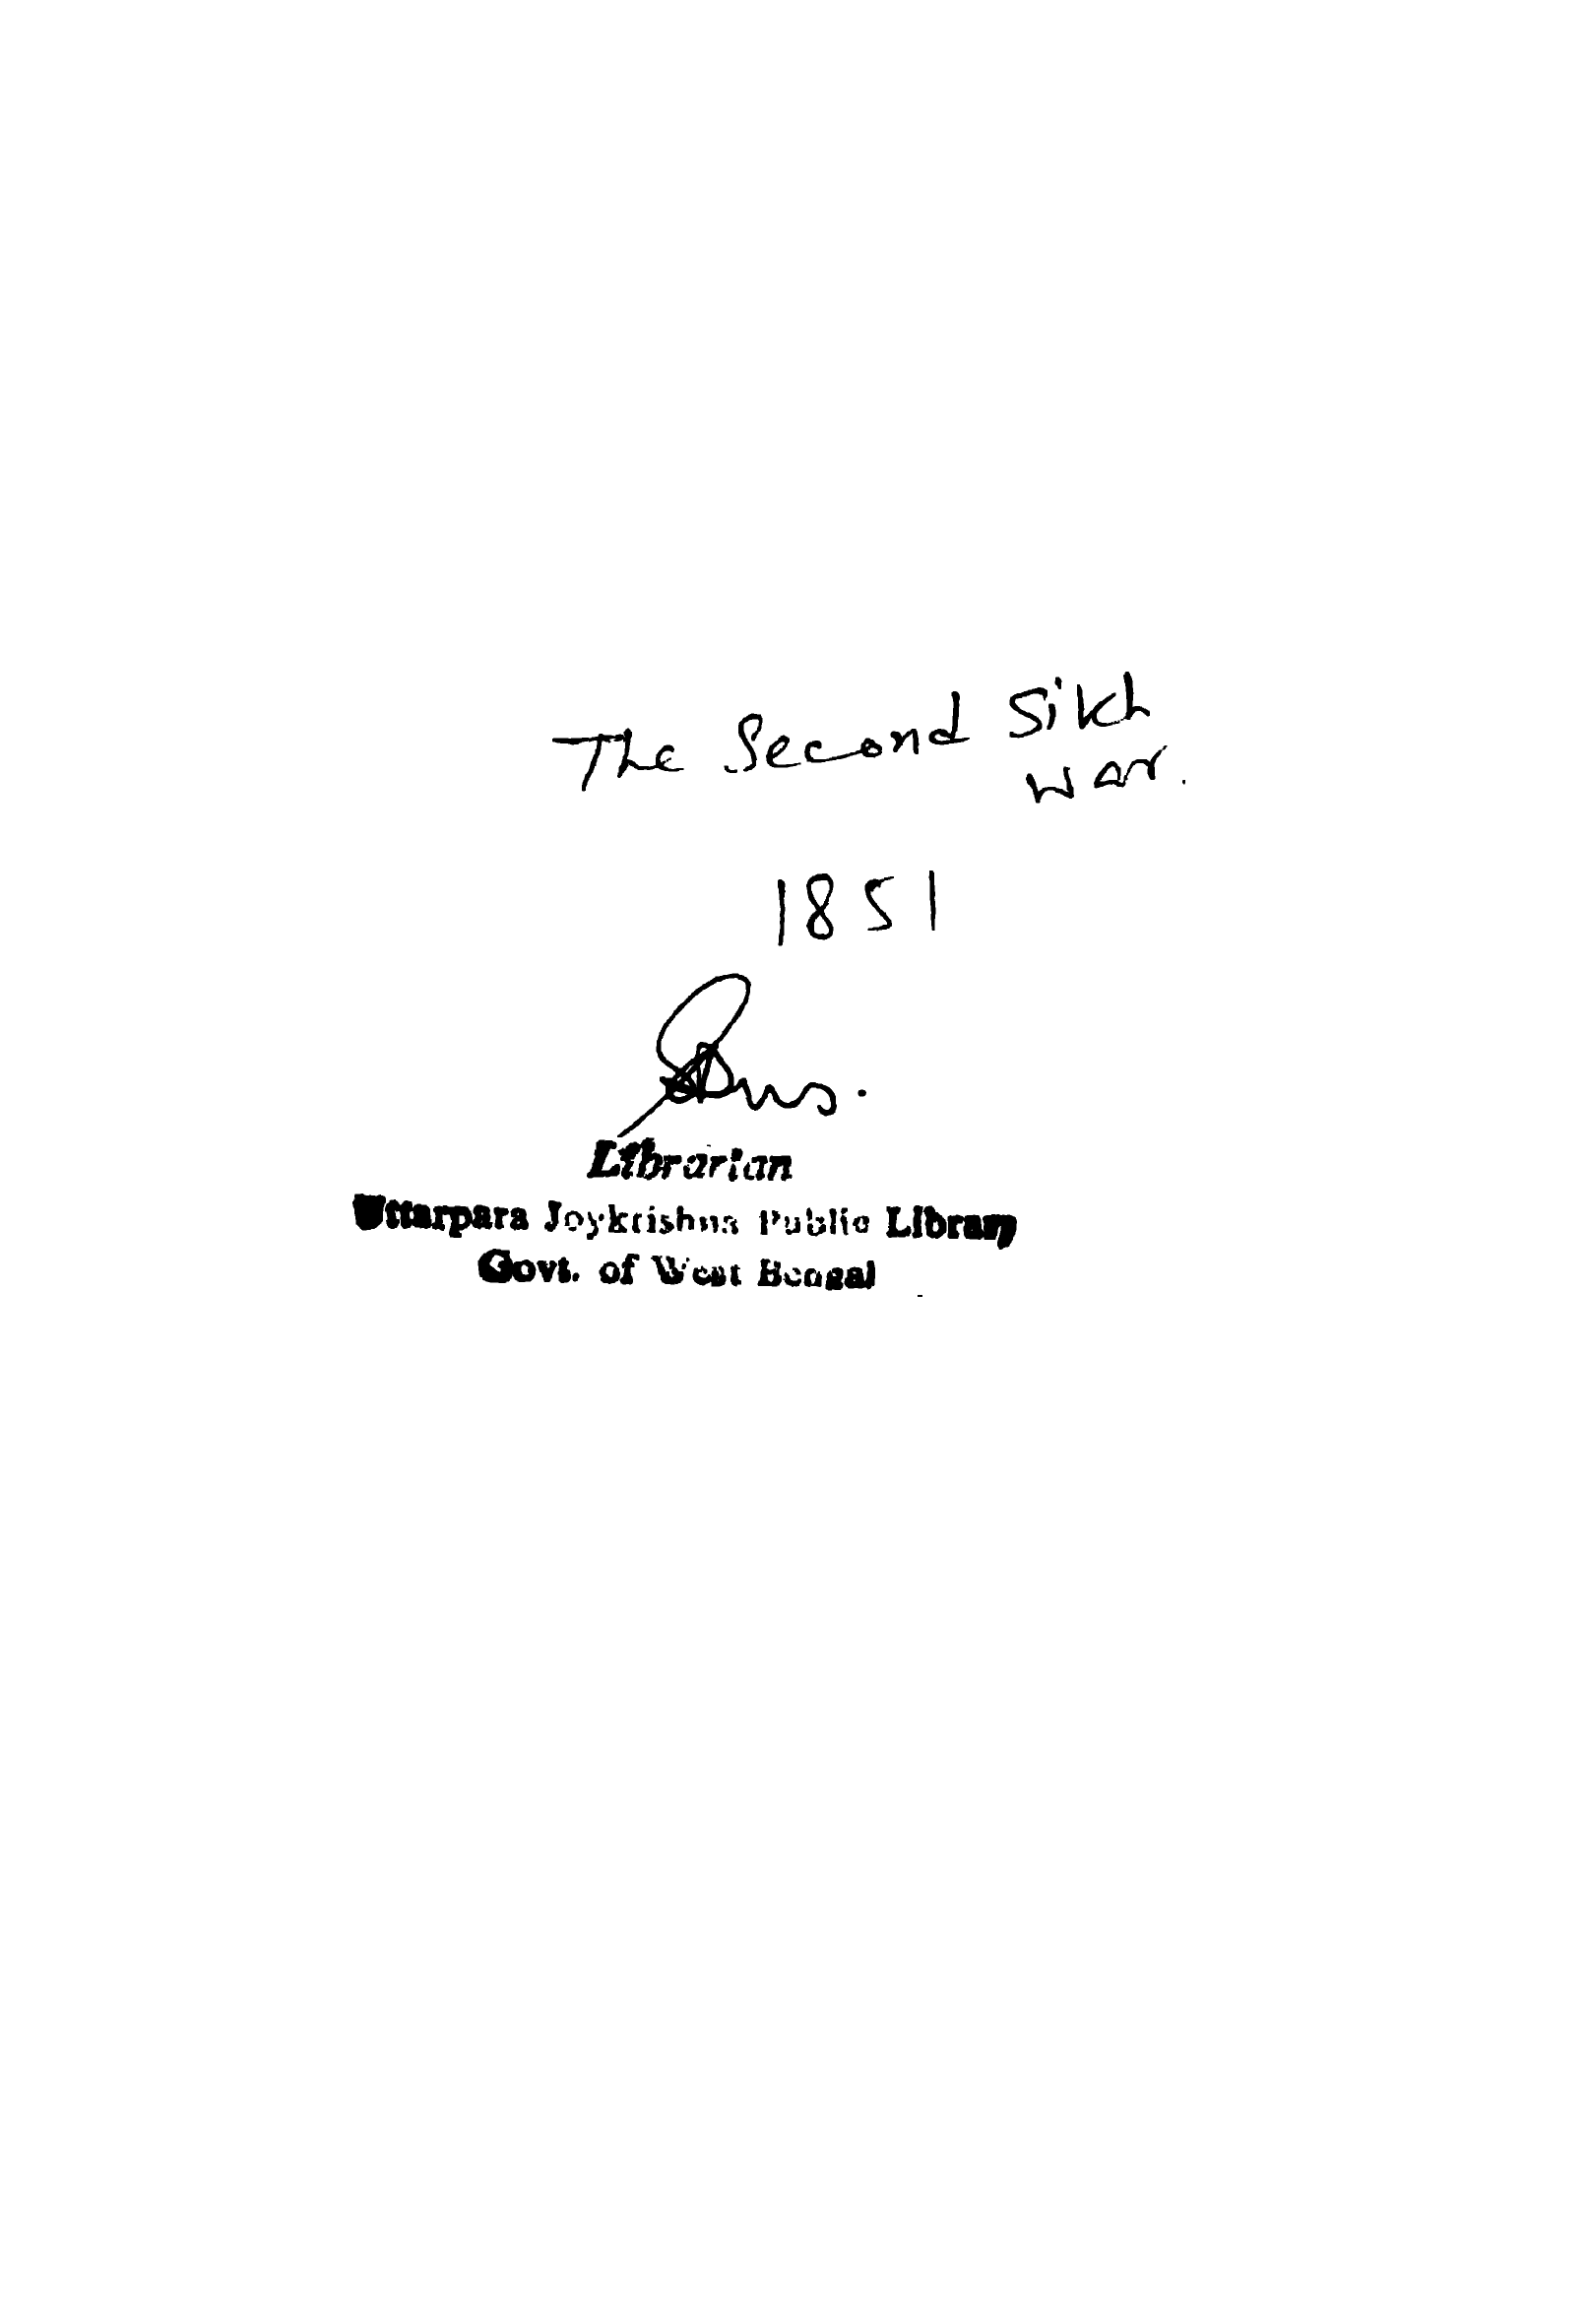 The Second Sikh
War.
1851
Librarian
Uttarpara Joykrishna Public Library
Govt. of West Bengal